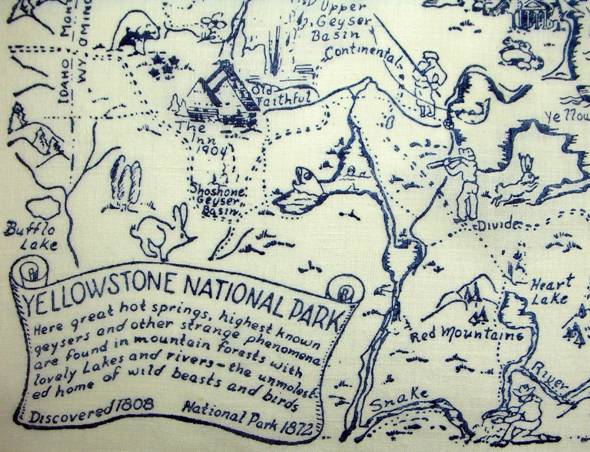 Upper
Geyser
Basin
Continental
IDAHO
WYOMING
Old
Faithful
The
Inn
1904
Shoshone
Geyser
Basin
Bufflo
Lake
Divide
Heart
Lake
Red Mountains
Snake
River
YELLOWSTONE NATIONAL PARK
Here great hot springs, highest known
geysers and other strange phenomena
are found in mountain forests with
lovely Lakes and rivers—the unmolest-
ed home of wild beasts and birds
Discovered 1808 National Park 1872